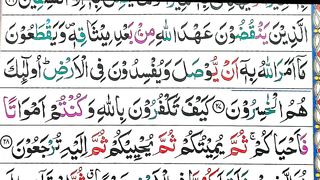 الَّذِيۡنَ يَنۡقُضُوۡنَ عَهۡدَ اللّٰهِ مِنۡۢ بَعۡدِ مِيۡثَاقِهٖ وَيَقۡطَعُوۡنَ
مَآ اَمَرَ اللّٰهُ بِهٖۤ اَنۡ يُّوۡصَلَ وَيُفۡسِدُوۡنَ فِى الۡاَرۡضِ‌ؕ اُولٰٓئِكَ
هُمُ الۡخٰسِرُوۡنَ ۲۷ كَيۡفَ تَكۡفُرُوۡنَ بِاللّٰهِ وَڪُنۡتُمۡ اَمۡوَاتًا
فَاَحۡيَاکُمۡ‌ۚ ثُمَّ يُمِيۡتُكُمۡ ثُمَّ يُحۡيِيۡكُمۡ ثُمَّ اِلَيۡهِ تُرۡجَعُوۡنَ ۲۸